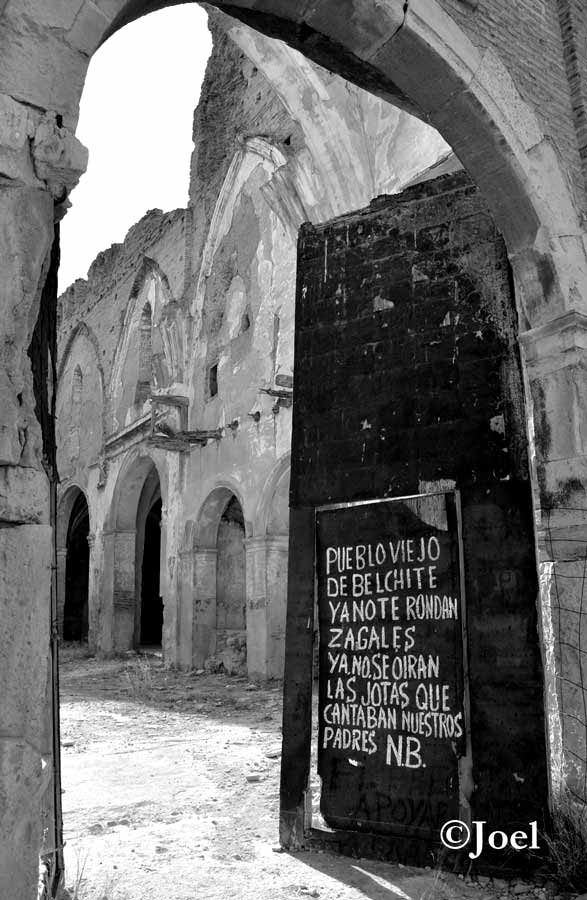 PUEBLO VIEJO
DE BELCHITE
YA NO TE RONDAN
ZAGALES
YA NO,SE OIRAN
LAS JOTAS QUE
CANTABAN NUESTROS
PADRES N.B.
APOYAR
©Joel